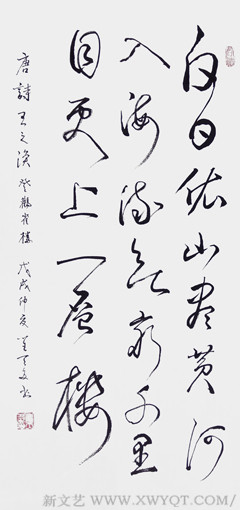 白日依山盡黄河
入海流欲窮千里
目更上一層樓
唐詩王之渙登鸛雀樓 戊戌仲夏
新文艺 WWW.XWYQT.COM